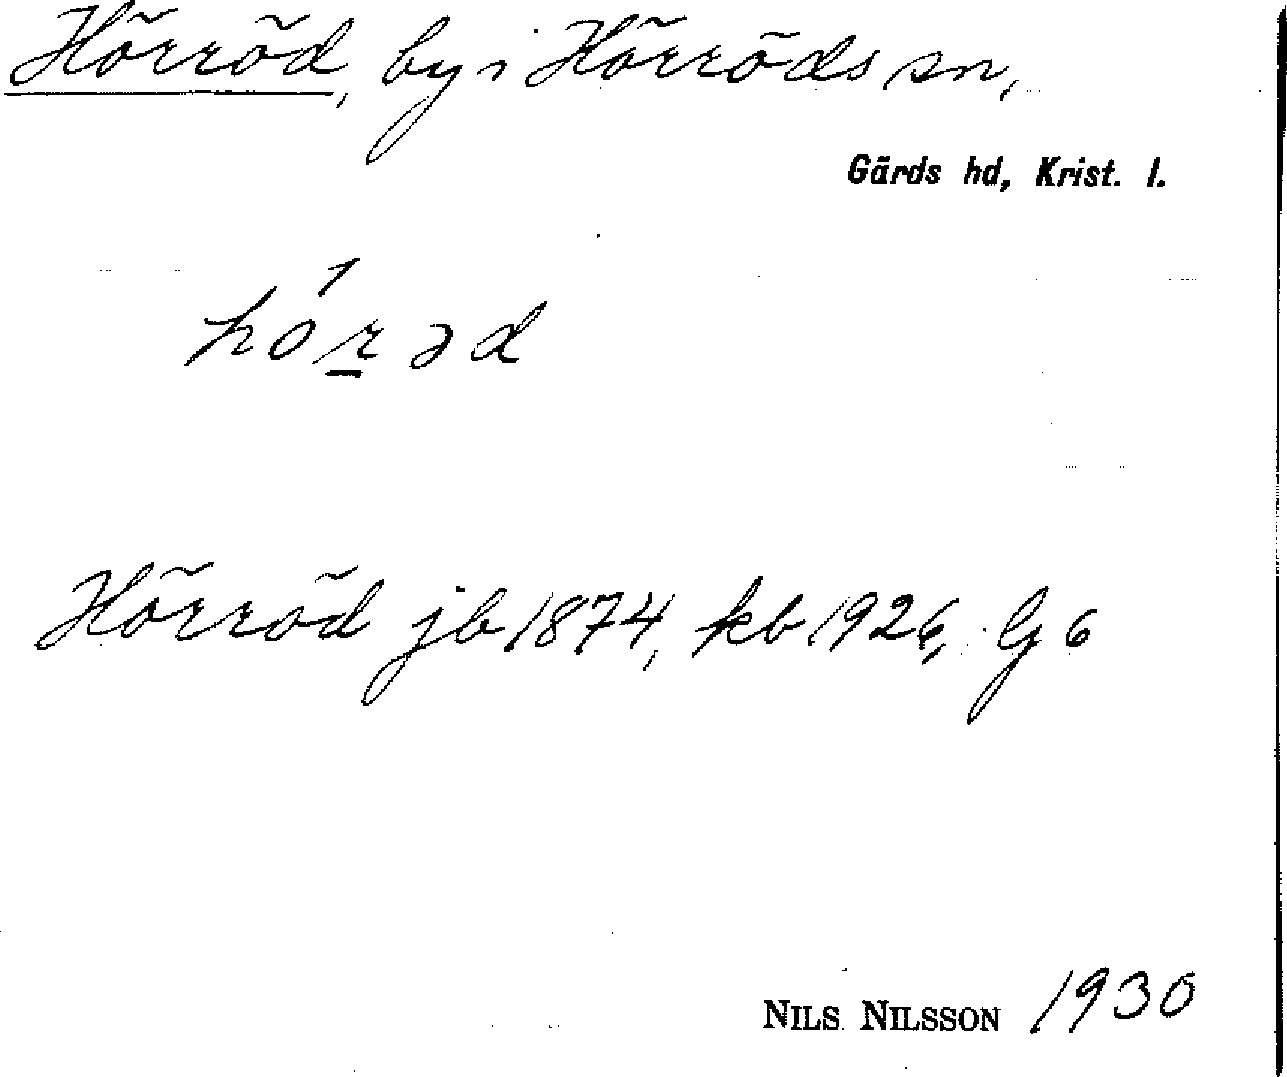 Hörröd, by i Hörröds sn,
Gärds hd, Krist. l.
hó́r̲əd
Hörröd jb 1874, kb 1926, G 6
NILS NILSSON 1930